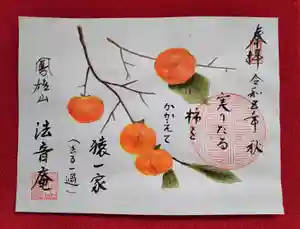 奉拝 令和五年 秋
実りたる
柿を
かかえて
猿一家
(さる一過)
鳳雄山
法音庵